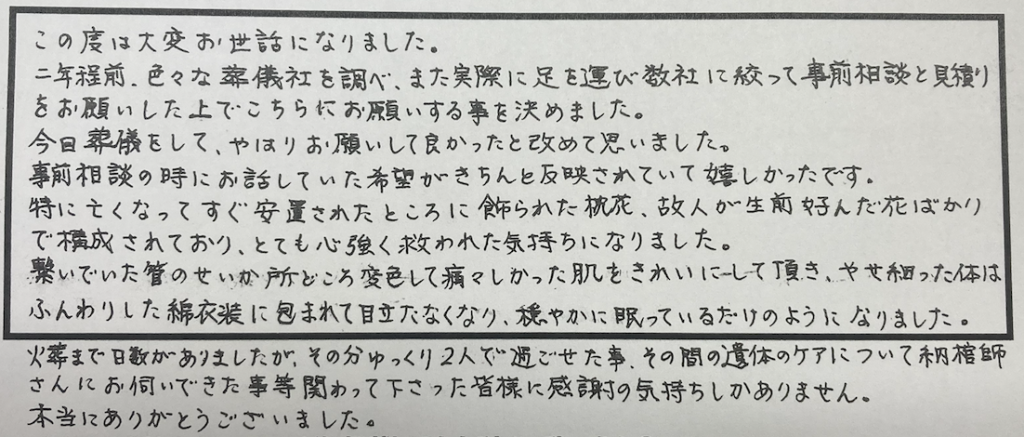 この度は大変お世話になりました。
二年程前、色々な葬儀社を調べ、また実際に足を運び数社に絞って事前相談と見積り
をお願いした上でこちらにお願いする事を決めました。
今日葬儀をして、やはりお願いして良かったと改めて思いました。
事前相談の時にお話していた希望がきちんと反映されていて嬉しかったです。
特に亡くなってすぐ安置されたところに飾られた枕花、故人が生前好んだ花ばかり
で構成されており、とても心強く救われた気持ちになりました。
繋いでいた管のせいか所どころ変色して痛々しかった肌をきれいにして頂き、やせ細った体は
ふんわりした綿衣装に包まれて目立たなくなり、穏やかに眠っているだけのようになりました。
火葬まで日数がありましたが、その分ゆっくり2人で過ごせた事、その間の遺体のケアについて納棺師
さんにお伺いできた事等関わって下さった皆様に感謝の気持ちしかありません。
本当にありがとうございました。